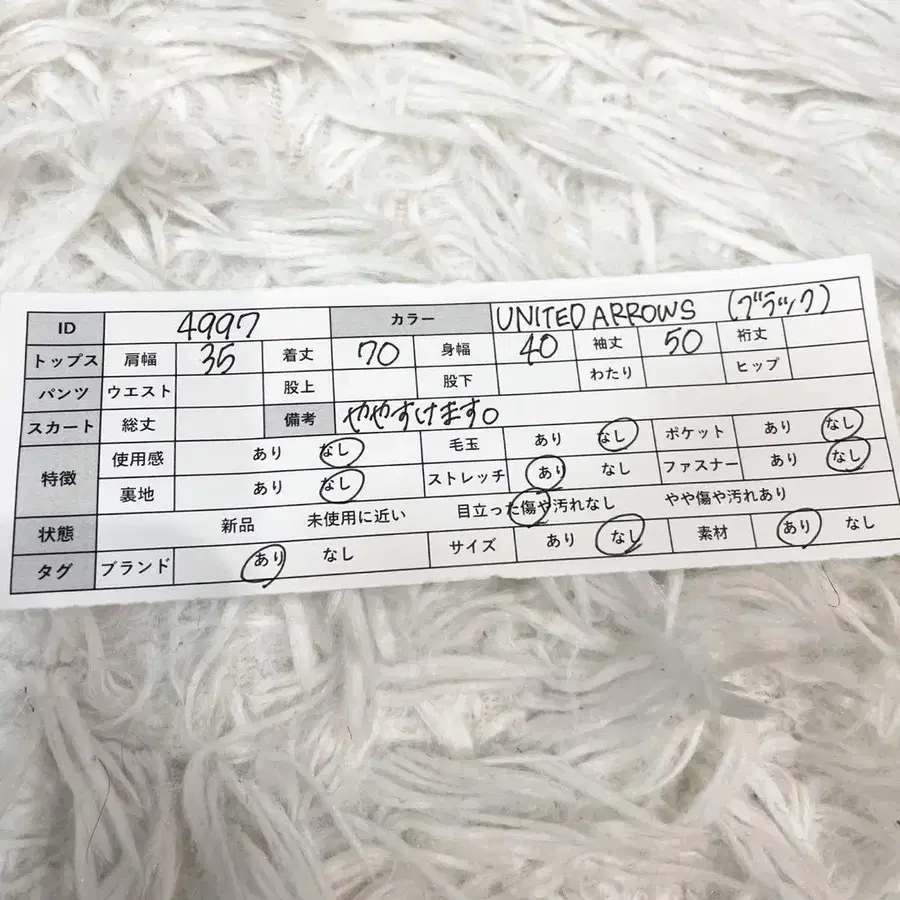 ID 4997 カラー UNITED ARROWS (ブラック)
トップス 肩幅 35 着丈 70 身幅 40 袖丈 50 裄丈
パンツ ウエスト 股上 股下 わたり ヒップ
スカート 総丈 備考 ややすけます。
特徴 使用感 あり なし 毛玉 あり なし ポケット あり なし
裏地 あり なし ストレッチ あり なし ファスナー あり なし
状態 新品 未使用に近い 目立った傷や汚れなし やや傷や汚れあり
タグ ブランド あり なし サイズ あり なし 素材 あり なし